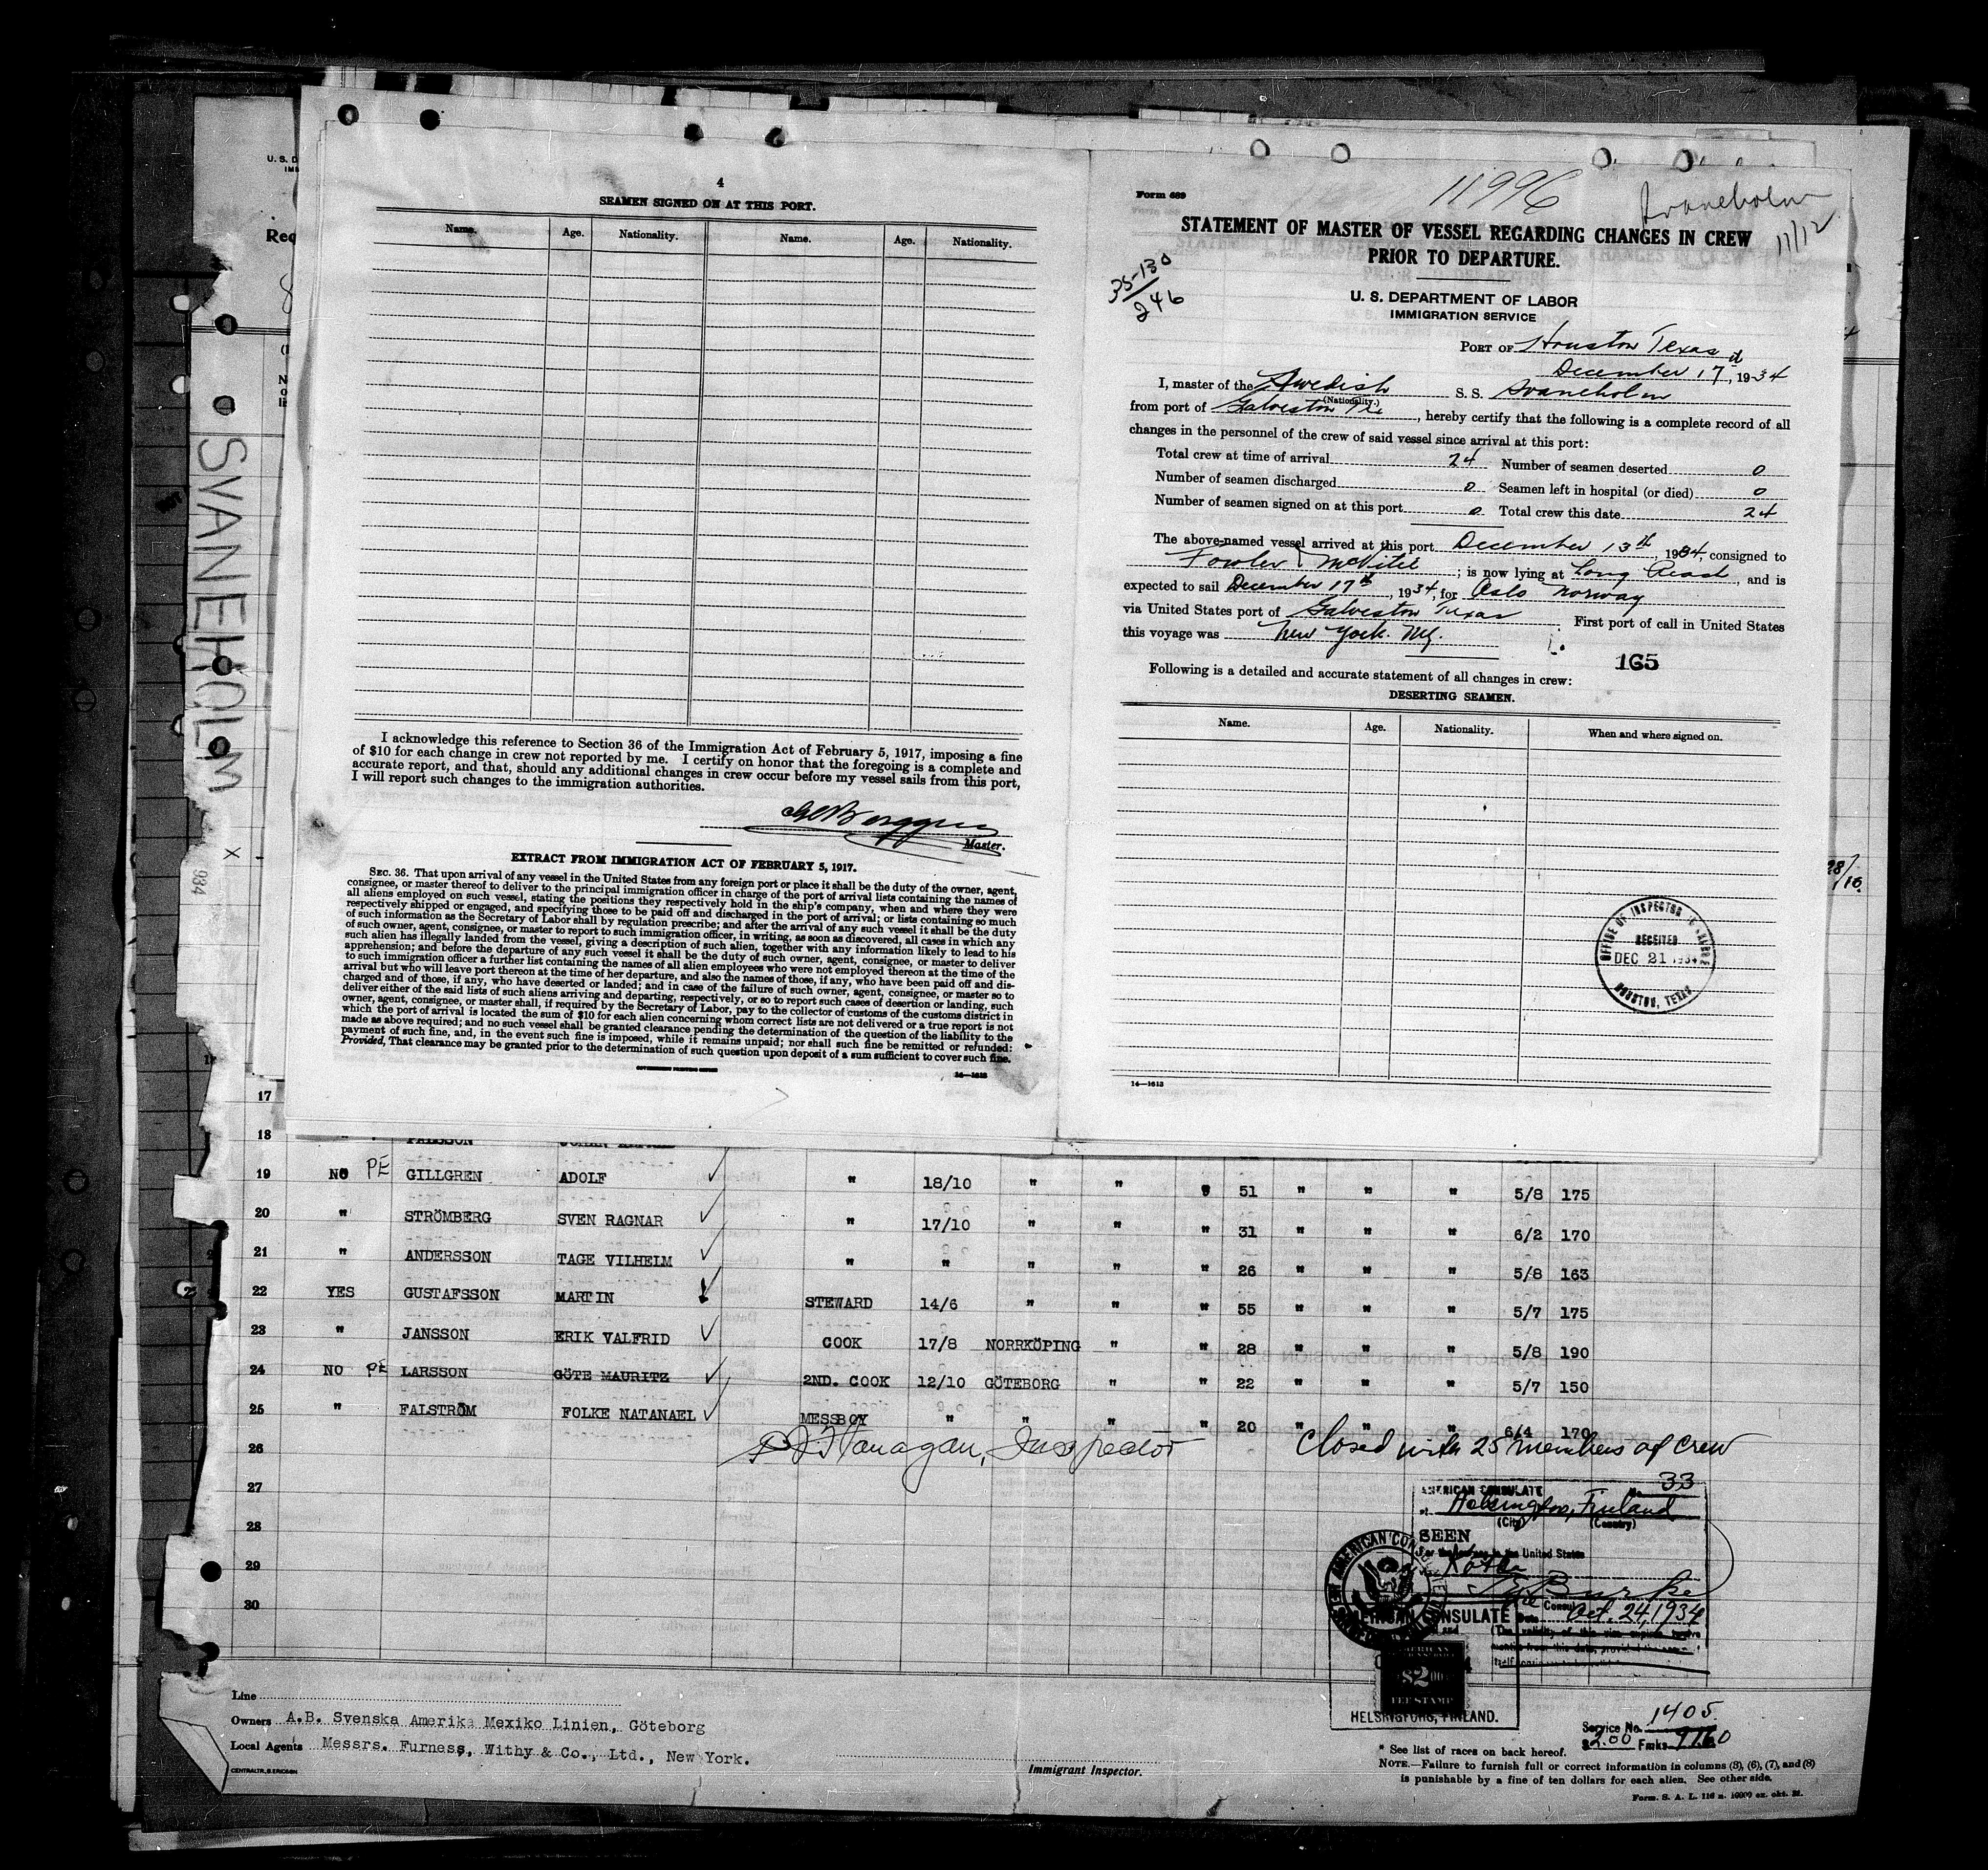 U. S. D
IM
Rec
SVANEHOLM
x
934
4
SEAMEN SIGNED ON AT THIS PORT.
Name. Age. Nationality. Name. Age. Nationality.
I acknowledge this reference to Section 36 of the Immigration Act of February 5, 1917, imposing a fine
of $10 for each change in crew not reported by me. I certify on honor that the foregoing is a complete and
accurate report, and that, should any additional changes in crew occur before my vessel sails from this port,
I will report such changes to the immigration authorities.
Berggren
Master.
EXTRACT FROM IMMIGRATION ACT OF FEBRUARY 5, 1917.
SEC. 36. That upon arrival of any vessel in the United States from any foreign port or place it shall be the duty of the owner, agent,
consignee, or master thereof to deliver to the principal immigration officer in charge of the port of arrival lists containing the names of
all aliens employed on such vessel, stating the positions they respectively hold in the ship's company, when and where they were
respectively shipped or engaged, and specifying those to be paid off and discharged in the port of arrival; or lists containing so much
of such information as the Secretary of Labor shall by regulation prescribe; and after the arrival of any such vessel it shall be the duty
of such owner, agent, consignee, or master to report to such immigration officer, in writing, as soon as discovered, all cases in which any
such alien has illegally landed from the vessel, giving a description of such alien, together with any information likely to lead to his
apprehension; and before the departure of any such vessel it shall be the duty of such owner, agent, consignee, or master to deliver
to such immigration officer a further list containing the names of all alien employees who were not employed thereon at the time of the
arrival but who will leave port thereon at the time of her departure, and also the names of those, if any, who have been paid off and dis-
charged and of those, if any, who have deserted or landed; and in case of the failure of such owner, agent, consignee, or master so to
deliver either of the said lists of such aliens arriving and departing, respectively, or so to report such cases of desertion or landing, such
owner, agent, consignee, or master shall, if required by the Secretary of Labor, pay to the collector of customs of the customs district in
which the port of arrival is located the sum of $10 for each alien concerning whom correct lists are not delivered or a true report is not
made as above required; and no such vessel shall be granted clearance pending the determination of the question of the liability to the
payment of such fine, and, in the event such fine is imposed, while it remains unpaid; nor shall such fine be remitted or refunded:
Provided, That clearance may be granted prior to the determination of such question upon deposit of a sum sufficient to cover such fine.
GOVERNMENT PRINTING OFFICE
14—1613
Form 689
11996
Svaneholm
11/12
STATEMENT OF MASTER OF VESSEL REGARDING CHANGES IN CREW
PRIOR TO DEPARTURE.
35-130
246
U. S. DEPARTMENT OF LABOR
IMMIGRATION SERVICE
PORT OF Houston Texas
December 17, 1934
I, master of the Swedish S. S. Svaneholm
(Nationality.)
from port of Galveston Tx., hereby certify that the following is a complete record of all
changes in the personnel of the crew of said vessel since arrival at this port:
Total crew at time of arrival 24 Number of seamen deserted 0
Number of seamen discharged 0 Seamen left in hospital (or died) 0
Number of seamen signed on at this port 0 Total crew this date 24
The above-named vessel arrived at this port December 13th, 1934, consigned to
Fowler & McVitie; is now lying at Long Reach, and is
expected to sail December 17th, 1934, for Oslo Norway
via United States port of Galveston Texas. First port of call in United States
this voyage was New York. NY.
165
Following is a detailed and accurate statement of all changes in crew:
DESERTING SEAMEN.
Name. Age. Nationality. When and where signed on.
OFFICE OF INSPECTOR IN CHARGE
RECEIVED
DEC 21 1934
HOUSTON, TEXAS
14—1613
28/10
17
18
19 NO PE GILLGREN ADOLF " 18/10 " " " 51 " " " 5/8 175
20 " STRÖMBERG SVEN RAGNAR " 17/10 " " " 31 " " " 6/2 170
21 " ANDERSSON TAGE VILHELM " " " " " 26 " " " 5/8 163
22 YES GUSTAFSSON MARTIN STEWARD 14/6 " " " 55 " " " 5/7 175
23 " JANSSON ERIK VALFRID COOK 17/8 NORRKÖPING " " 28 " " " 5/8 190
24 NO PE LARSSON GÖTE MAURITZ 2ND. COOK 12/10 GÖTEBORG " " 22 " " " 5/7 150
25 " FALSTRÖM FOLKE NATANAEL MESSBOY " " " " 20 " " " 6/4 170
26 Flanagan, Inspector closed with 25 members of crew
27
28
29
30
AMERICAN CONSULATE No. 33
at Helsingfors, Finland
(City) (Country)
SEEN
For the journey to the United States
Kotka
Burke
Vice Consul
Date Oct. 24, 1934
AMERICAN CONSULATE
$2.00
FEE STAMP
HELSINGFORS, FINLAND.
Service No. 1405
$2.00 Fmks 91.60
Line
Owners A.B. Svenska Amerika Mexiko Linien, Göteborg
Local Agents Messrs. Furness, Withy & Co., Ltd., New York.
CENTRALTR., G. ERICSON
Immigrant Inspector.
* See list of races on back hereof.
NOTE.—Failure to furnish full or correct information in columns (3), (6), (7), and (8)
is punishable by a fine of ten dollars for each alien. See other side.
Form. S. A. L. 116 a. 10000 ex. okt. 31.